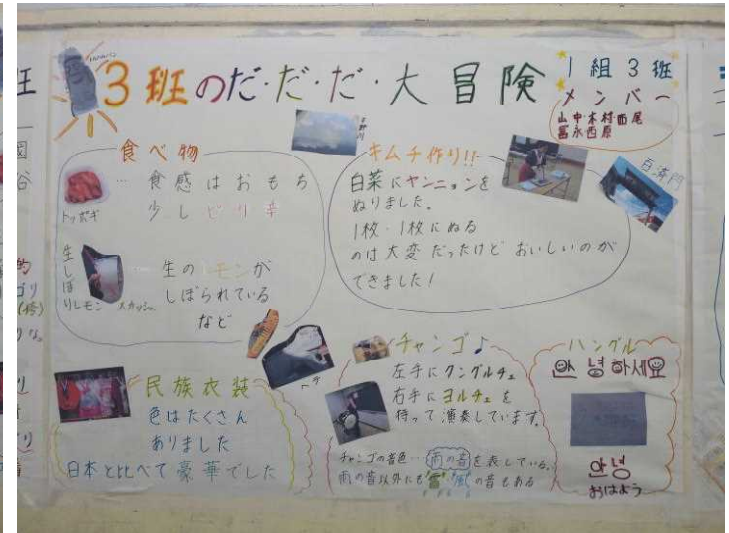 3班のだ・だ・だ・大冒険
1組3班
メンバー
山中木村西尾
冨永西原
食べ物
トッポギ
… 食感はおもち
少しピリ辛
生しぼりレモンスカッシュ
生のレモンが
しぼられている
など
キムチ作り!!
白菜にヤンニョンを
ぬりました。
1枚・1枚にぬる
のは大変だったけどおいしいのが
できました!
百済門
民族衣装
色はたくさん
ありました
日本と比べて豪華でした
チャンゴ♪
左手にクングルチェ
右手にヨルチェを
持って演奏しています。
チャンゴの音色…雨の音を表している。
雨の音以外にも雷・風の音もある
ハングル
안녕하세요
안녕
おはよう